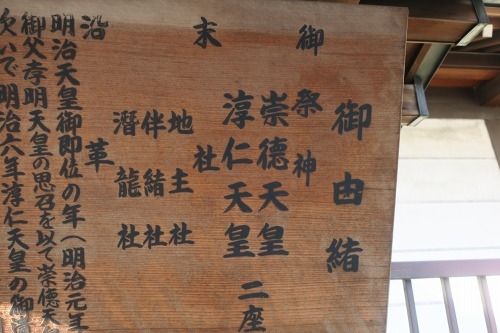 御由緒
御祭神
崇德天皇
淳仁天皇 二座
末社
地主社
伴緒社
潜龍社
沿革
明治天皇御即位の年(明治元年
御父孝明天皇の思召を以て崇德天
次いで明治六年淳仁天皇の御